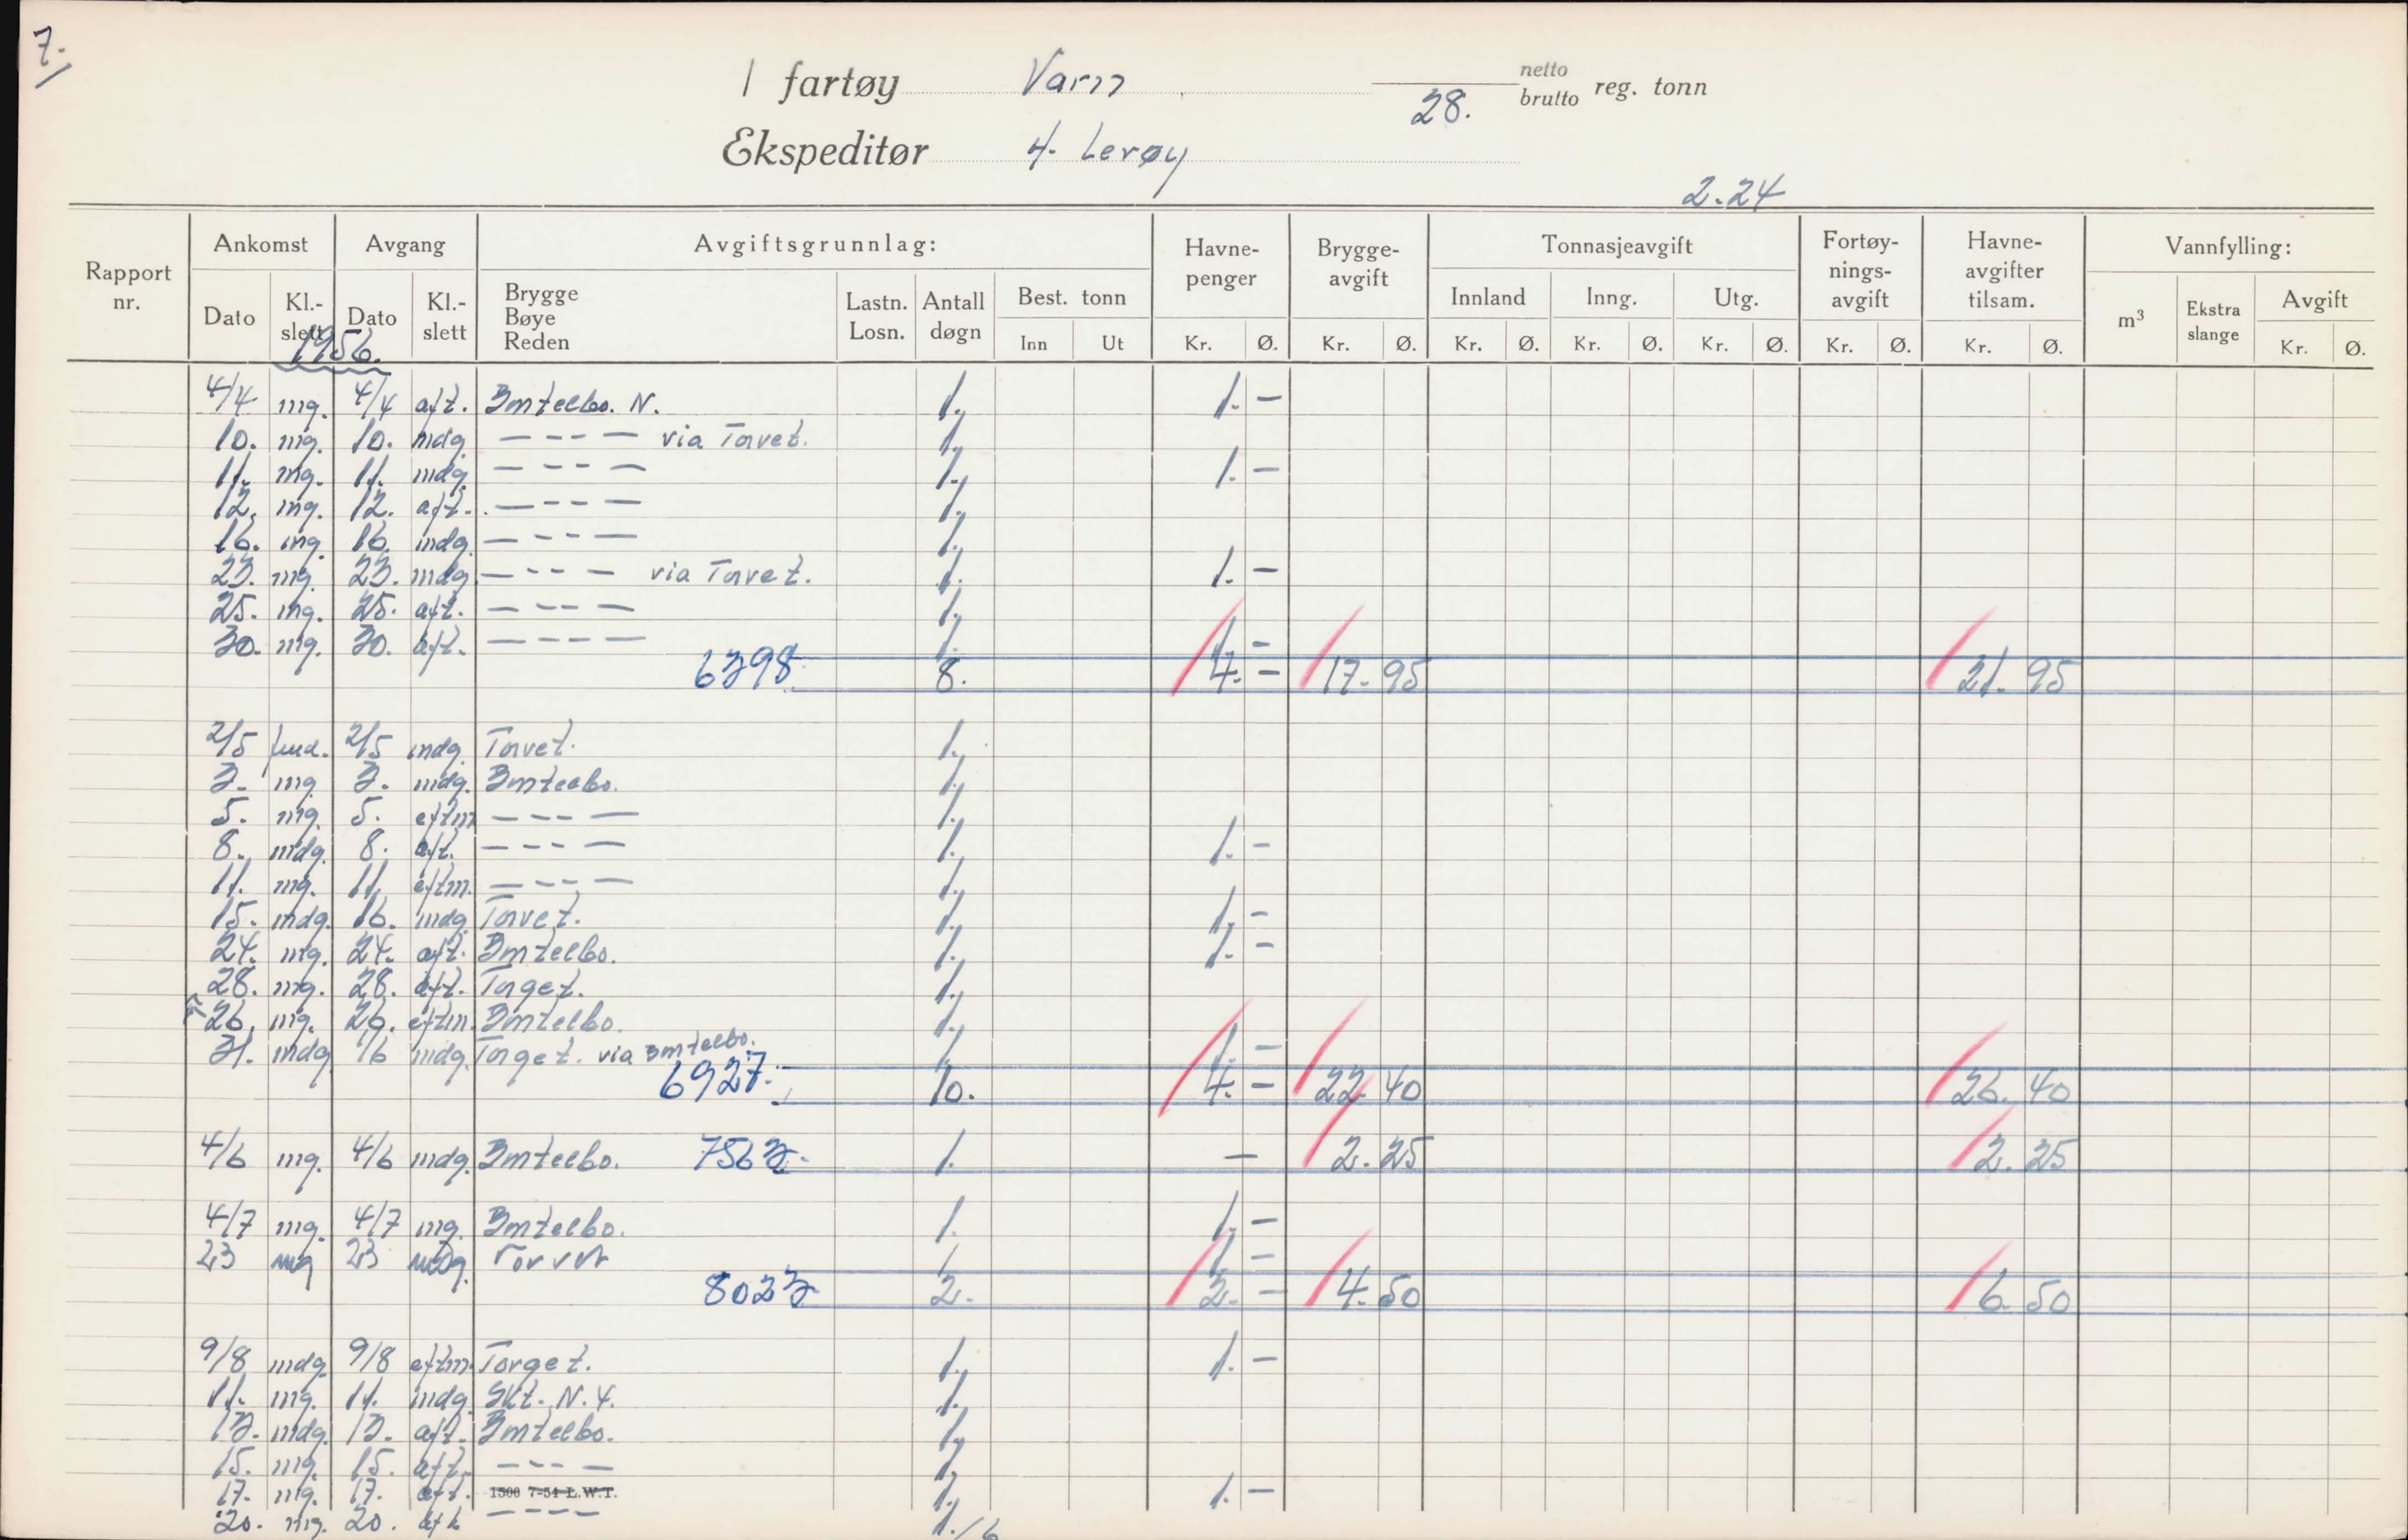 7.
I fartøy Varn 28. netto brutto reg. tonn
Ekspeditør H. Lerøy
2.24
Rapport nr. Ankomst Avgang Avgiftsgrunnlag: Havne-penger Brygge-avgift Tonnasjeavgift Fortøy-nings-avgift Havne-avgifter tilsam. Vannfylling:
Dato Kl.-slett Dato Kl.-slett Brygge Bøye Reden Lastn. Losn. Antall døgn Best. tonn Innland Inng. Utg. m³ Ekstra slange Avgift
Inn Ut Kr. Ø. Kr. Ø. Kr. Ø. Kr. Ø. Kr. Ø. Kr. Ø. Kr. Ø. Kr. Ø.
1956.
4/4 mg. 4/4 aft. N. 1. 1. —
10. mg. 10. mdg. — - - — via Torvet. 1.
11. mg. 11. mdg. — - - — 1. 1. —
12. mg. 12. aft. — - - — 1.
16. mg. 16. mdg. — - - — 1.
23. mg. 23. mdg. — - - — via Torvet. 1. 1. —
25. mg. 25. aft. — - - — 1.
30. mg. 30. aft. — - - — 1. 1. —
6398 8. 4. — 17. 95 21. 95
2/5 2/5 mdg. Torvet. 1.
3. mg. 3. mdg. 1.
5. mg. 5. eftm — - - — 1.
8. mdg. 8. aft. — - - — 1. 1. —
11. mg. 11. eftm. — - - — 1.
15. mdg. 16. mdg. Torvet. 1. 1. —
24. mg. 24. aft. 1. 1. —
28. mg. 28. aft. Torget. 1.
26. mg. 26. eftm. 1.
31. mdg. 1/6 mdg. Torget. via 1. 1. —
6927. 10. 4. — 22. 40 26. 40
4/6 mg. 4/6 mdg. 7563. 1. — 2. 25 2. 25
4/7 mg. 4/7 mg. 1. 1. —
23 mg 23 mdg. Torvet 1 1 —
8023 2. 2. — 4. 50 6. 50
9/8 mdg. 9/8 eftm. Torget. 1. 1. —
11. mg. 11. mdg. Skt. N. 4. 1.
13. mdg. 13. aft. 1.
15. mg. 15. aft. — - - — 1.
17. mg. 17. aft. 1500 7-54 L.W.T. 1. 1. —
20. mg. 20. aft — - - — 1./6